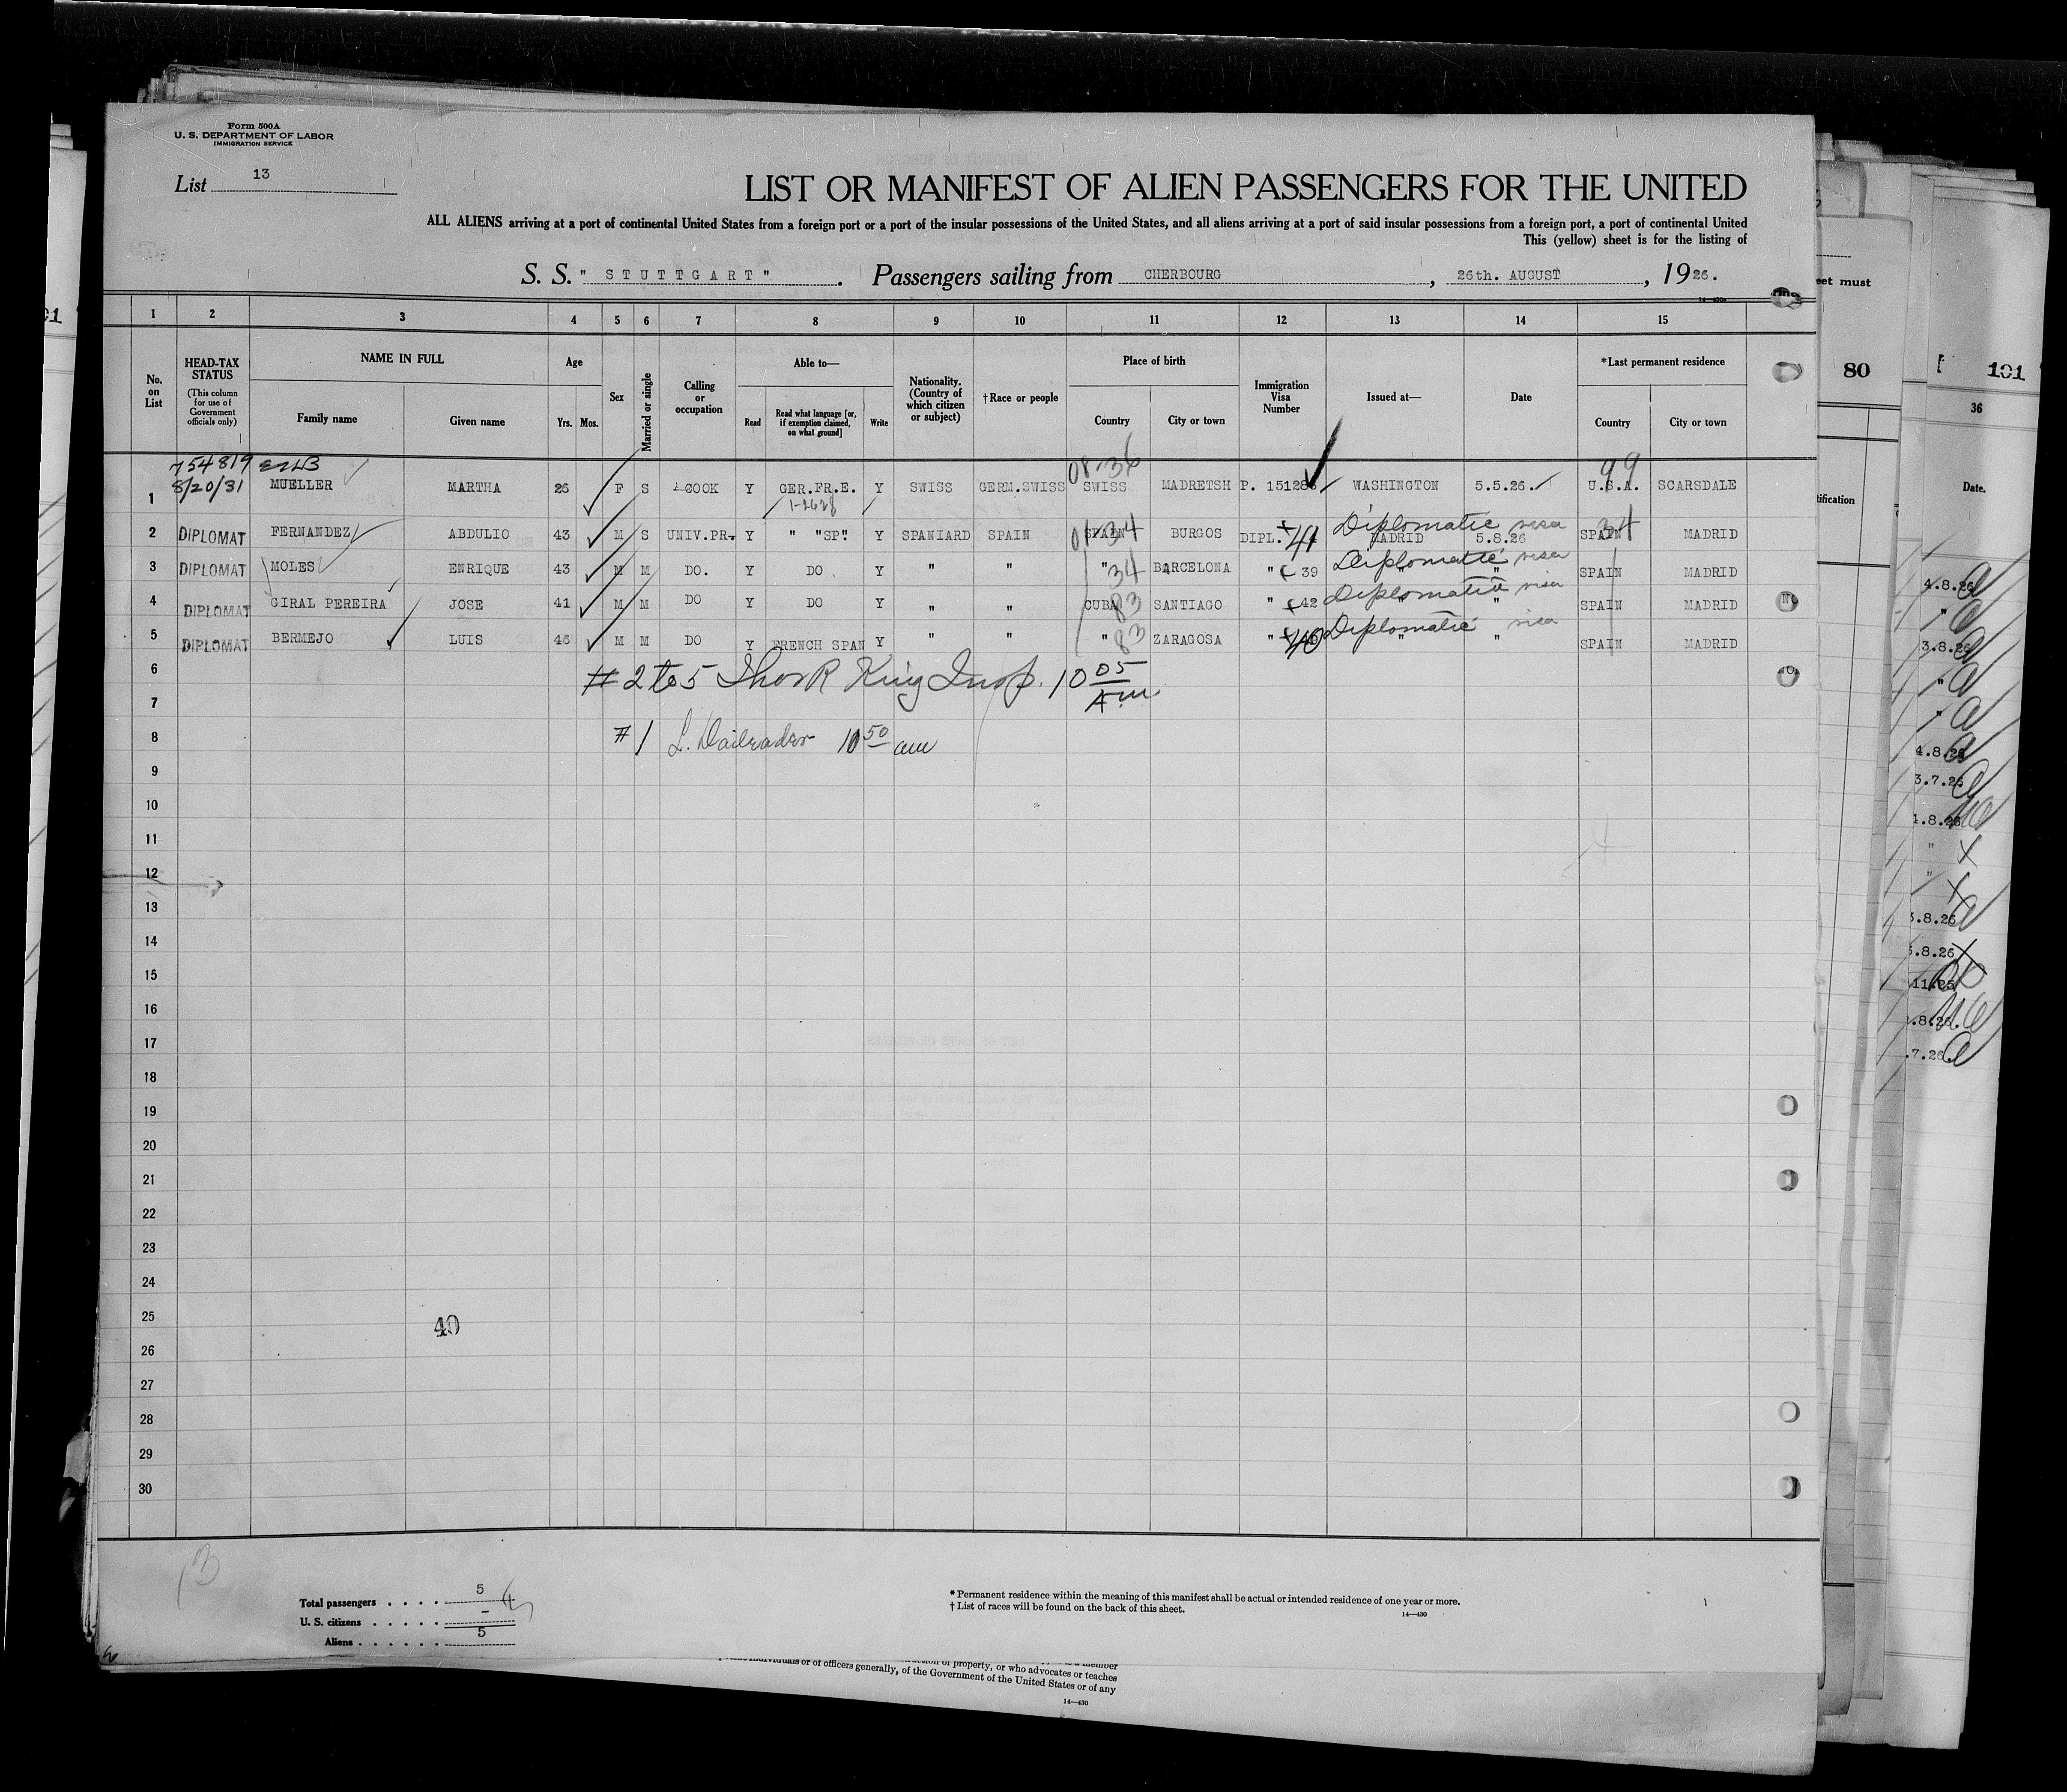 Form 500A
U. S. DEPARTMENT OF LABOR
IMMIGRATION SERVICE
List 13
LIST OR MANIFEST OF ALIEN PASSENGERS FOR THE UNITED
ALL ALIENS arriving at a port of continental United States from a foreign port or a port of the insular possessions of the United States, and all aliens arriving at a port of said insular possessions from a foreign port, a port of continental United
This (yellow) sheet is for the listing of
S. S. " STUTTGART " . Passengers sailing from CHERBOURG , 26th. AUGUST , 1926.
1 2 3 4 5 6 7 8 9 10 11 12 13 14 15
No. on List
HEAD-TAX STATUS
(This column for use of Government officials only)
NAME IN FULL
Family name
Given name
Age
Yrs. Mos.
Sex
Married or single
Calling or occupation
Able to—
Read
Read what language [or, if exemption claimed, on what ground]
Write
Nationality. (Country of which citizen or subject)
†Race or people
Place of birth
Country
City or town
Immigration Visa Number
Issued at—
Date
*Last permanent residence
Country
City or town
754819
08-36
99
1 8/20/31 MUELLER MARTHA 26 F S COOK Y GER.FR.E. Y SWISS GERM.SWISS SWISS MADRETSH P. 15128 WASHINGTON 5.5.26. U.S.A. SCARSDALE
2 DIPLOMAT FERNANDEZ ABDULIO 43 M S UNIV.PR. Y " "SP". Y SPANIARD SPAIN 01-34 SPAIN BURGOS DIPL. 41 Diplomatic visa MADRID 5.8.26 SPAIN 34 MADRID
3 DIPLOMAT MOLES ENRIQUE 43 M M DO. Y DO Y " " " 34 BARCELONA " 39 Diplomatic visa " " SPAIN MADRID
4 DIPLOMAT GIRAL PEREIRA JOSE 41 M M DO Y DO Y " " CUBA 83 SANTIAGO " 42 Diplomatic visa " " SPAIN MADRID
5 DIPLOMAT BERMEJO LUIS 46 M M DO Y FRENCH SPAN Y " " " 83 ZARAGOSA " 40 Diplomatic visa " " SPAIN MADRID
6 # 2 to 5 King Insp. 10 05 Am
7
8 # 1 10 50 am
9
10
11
12
13
14
15
16
17
18
19
20
21
22
23
24
25
40
26
27
28
29
30
Total passengers . . . . 5
U. S. citizens . . . . . –
Aliens . . . . . . 5
* Permanent residence within the meaning of this manifest shall be actual or intended residence of one year or more.
† List of races will be found on the back of this sheet.
14—430
of property, or who advocates or teaches
or of officers generally, of the Government of the United States or of any
14—430
must
80
101
36
Date.
4.8.26
"
3.8.26
"
"
4.8.26
3.7.26